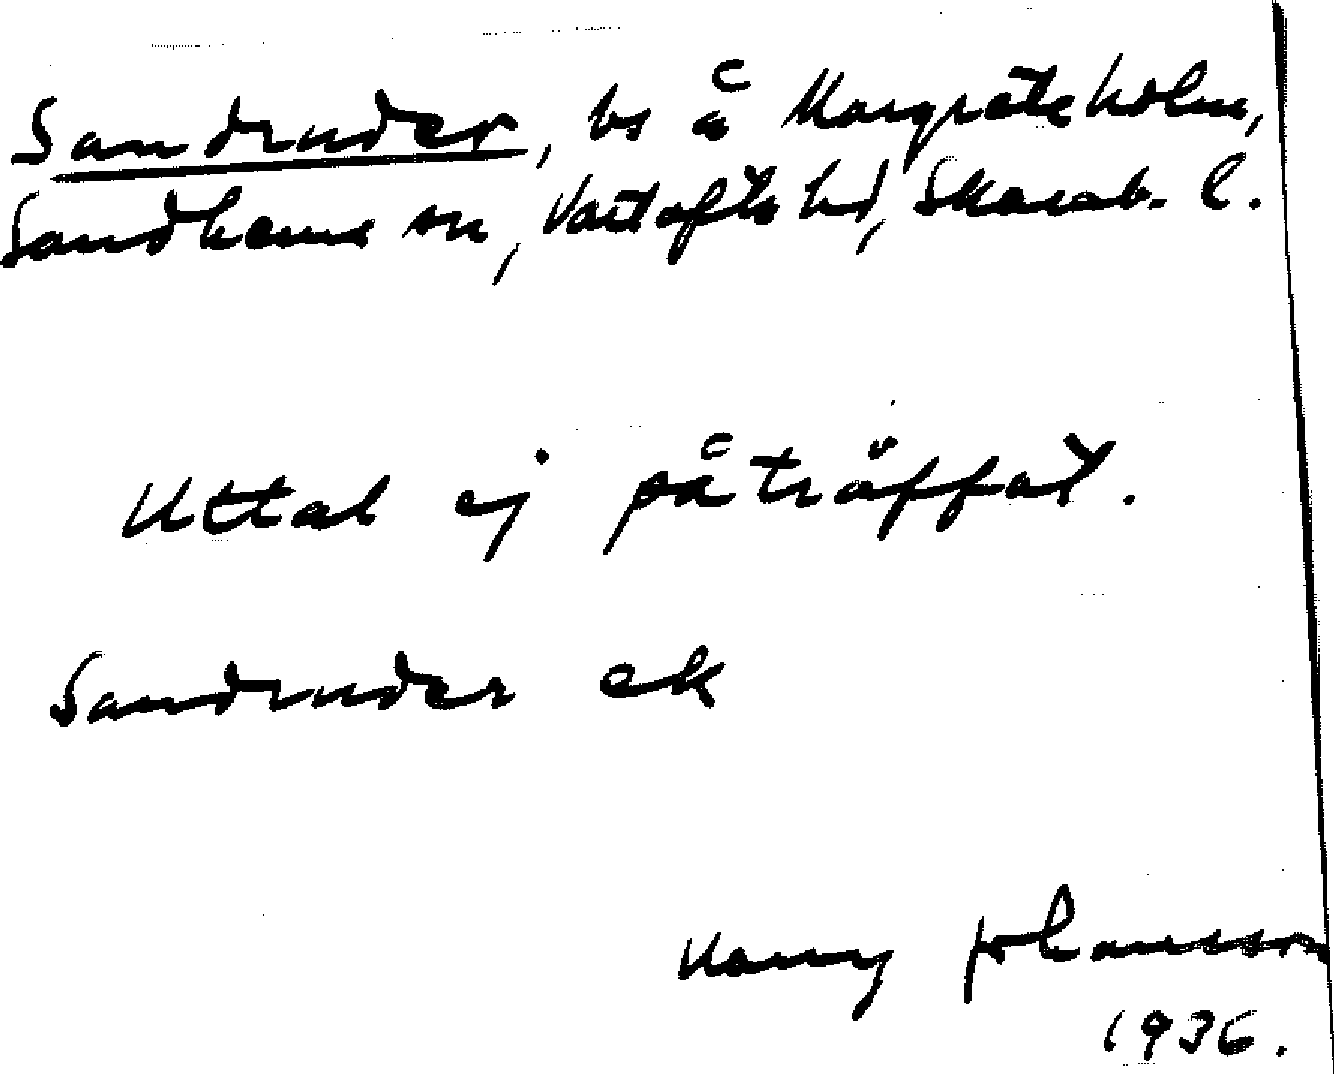 Sandruder, bs å Margreteholm,
Sandhems sn, Vartofta hd, Skarab. l.
Uttal ej påträffat.
Sandruder ek
Harry Johansson
1936.